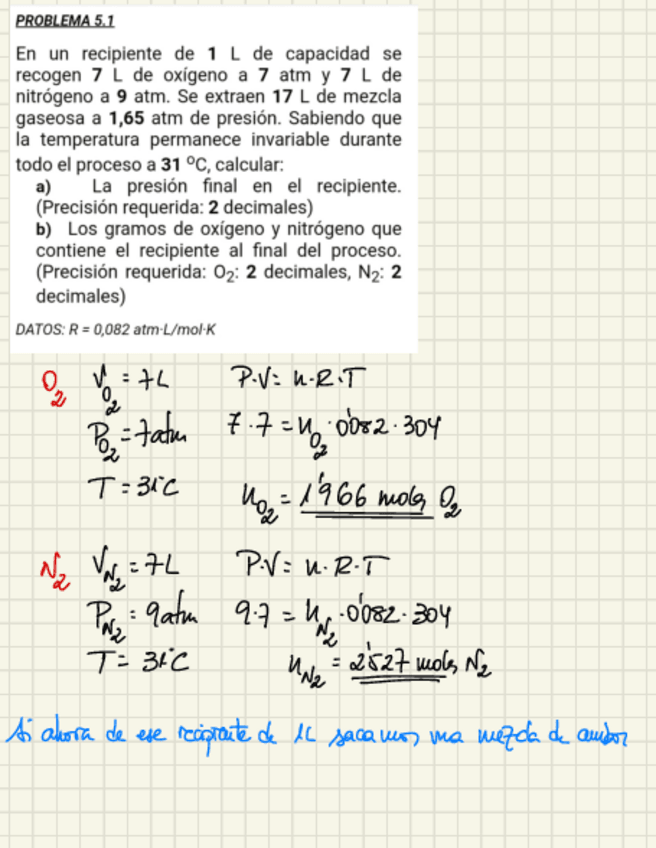 PROBLEMA 5.1
En un recipiente de 1 L de capacidad se
recogen 7 L de oxígeno a 7 atm y 7 L de
nitrógeno a 9 atm. Se extraen 17 L de mezcla
gaseosa a 1,65 atm de presión. Sabiendo que
la temperatura permanece invariable durante
todo el proceso a 31 ºC, calcular:
a) La presión final en el recipiente.
(Precisión requerida: 2 decimales)
b) Los gramos de oxígeno y nitrógeno que
contiene el recipiente al final del proceso.
(Precisión requerida: O₂: 2 decimales, N₂: 2
decimales)
DATOS: R = 0,082 atm·L/mol·K
O₂ V_O₂ = 7L P·V = n·R·T
P_O₂ = 7atm 7·7 = n_O₂·0'082·304
T = 31ºC n_O₂ = 1'966 moles O₂
N₂ V_N₂ = 7L P·V = n·R·T
P_N₂ = 9atm 9·7 = n_N₂·0'082·304
T = 31ºC n_N₂ = 2'527 moles N₂
Si ahora de ese recipiente de 1L sacamos una mezcla de ambos